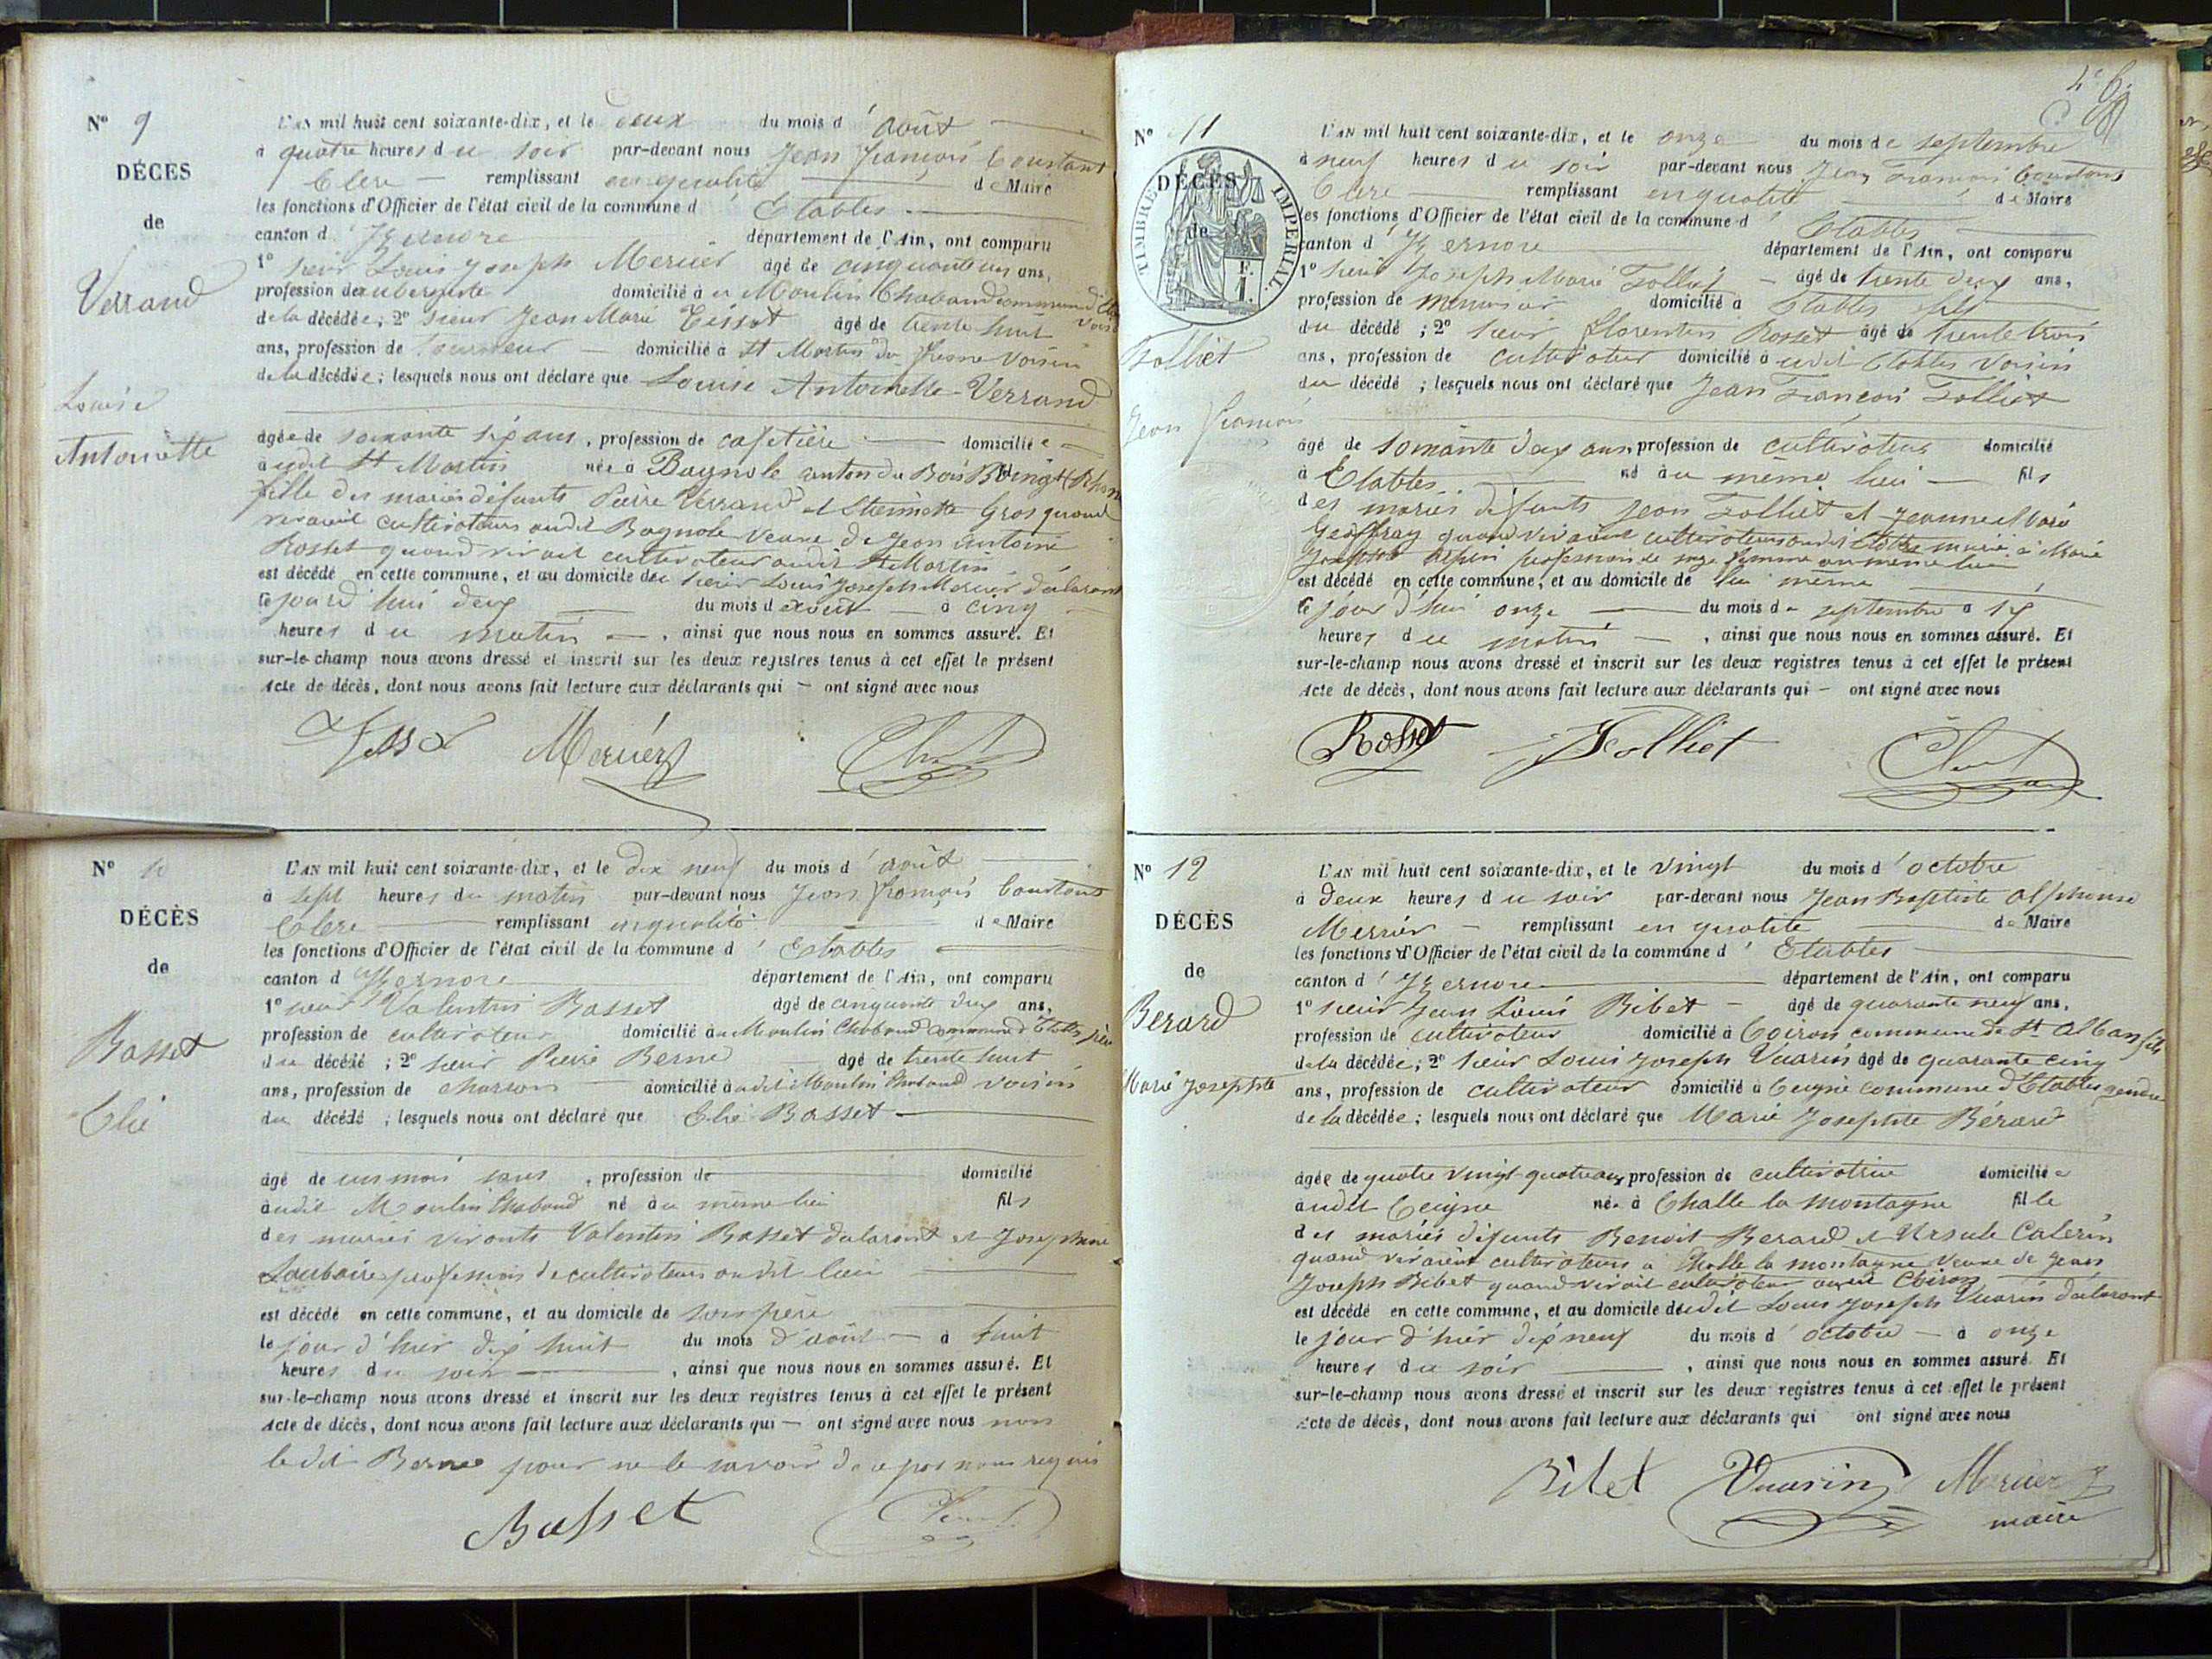 N° 9
DÉCES
de
Verrand
Louise
Antoinette
L'AN mil huit cent soixante-dix, et le deux du mois d'août
à quatre heures du soir par-devant nous Jean François Constant
Clerc remplissant en qualité de Maire
les fonctions d'Officier de l'état civil de la commune d'Etables
canton d'Izernore département de l'Ain, ont comparu
1° sieur Louis Joseph Mercier âgé de cinquante un ans,
profession de aubergiste domicilié à u Moulin Chabaud commune d'
de la décédée; 2° sieur Jean Marie Tissot âgé de trente huit
ans, profession de domicilié à St Martin du Fresne voisin
de la décédée; lesquels nous ont déclaré que Louise Antoinette Verrand
âgée de soixante six ans, profession de cafetière domiciliée
à udit St Martin née à Bagnole canton du Bois
fille des mariés défunts Pierre Verrand et Etiennette Gros quand
vivaient cultivateurs audit Bagnole veuve de Jean Antoine
Rosset quand vivait cultivateur audit St Martin
est décédé en cette commune, et au domicile de sieur Louis Joseph Mercier déclarant
le jourd'hui deux du mois d'août à cinq
heures du matin, ainsi que nous nous en sommes assuré. Et
sur-le-champ nous avons dressé et inscrit sur les deux registres tenus à cet effet le présent
Acte de décès, dont nous avons fait lecture aux déclarants qui — ont signé avec nous
Mercier
N° 10
DÉCÈS
de
Basset
Elie
L'AN mil huit cent soixante-dix, et le dix neuf du mois d'août
à sept heures du matin par-devant nous Jean François Constant
Clerc remplissant en qualité de Maire
les fonctions d'Officier de l'état civil de la commune d'Etables
canton d'Izernore département de l'Ain, ont comparu
1° sieur Valentin Basset âgé de cinquante deux ans,
profession de cultivateur domicilié au Moulin Chabaud commune d'Etables père
du décédé; 2° sieur Pierre Berne âgé de trente huit
ans, profession de charron domicilié à udit Moulin Chabaud voisin
du décédé; lesquels nous ont déclaré que Elie Basset
âgé de un mois, profession de domicilié
à udit Moulin Chabaud né au même lieu fils
des mariés vivants Valentin Basset déclarant et Josephine
profession de cultivateurs audit lieu
est décédé en cette commune, et au domicile de son père
le jour d'hier dix huit du mois d'août à huit
heures du soir, ainsi que nous nous en sommes assuré. Et
sur-le-champ nous avons dressé et inscrit sur les deux registres tenus à cet effet le présent
Acte de décès, dont nous avons fait lecture aux déclarants qui — ont signé avec nous non
ledit Berne pour ne le savoir de ce par nous requis
Basset
N° 11
DÉCÈS
de
TIMBRE IMPÉRIAL
Folliet
Jean François
L'AN mil huit cent soixante-dix, et le onze du mois de septembre
à neuf heures du soir par-devant nous Jean François Constant
Clerc remplissant en qualité de Maire
les fonctions d'Officier de l'état civil de la commune d'Etables
canton d'Izernore département de l'Ain, ont comparu
1° sieur Joseph Marie Folliet âgé de trente deux ans,
profession de menuisier domicilié à Etables fils
du décédé; 2° sieur Florentin Rosset âgé de trente trois
ans, profession de cultivateur domicilié à udit Etables voisin
du décédé; lesquels nous ont déclaré que Jean François Folliet
âgé de soixante deux ans, profession de cultivateur domicilié
à Etables né au même lieu fils
des mariés défunts Jean Folliet et Jeanne Marie
Geoffray quand vivaient cultivateurs audit Etables marié à Marie
Josephte profession de sage femme au même lieu
est décédé en cette commune, et au domicile de lui même
le jour d'hui onze du mois de septembre à six
heures du matin, ainsi que nous nous en sommes assuré. Et
sur-le-champ nous avons dressé et inscrit sur les deux registres tenus à cet effet le présent
Acte de décès, dont nous avons fait lecture aux déclarants qui — ont signé avec nous
Rosset Folliet
N° 12
DÉCÈS
de
Berard
Marie Josephte
L'AN mil huit cent soixante-dix, et le vingt du mois d'octobre
à deux heures du soir par-devant nous Jean Baptiste Alphonse
Mercier remplissant en qualité de Maire
les fonctions d'Officier de l'état civil de la commune d'Etables
canton d'Izernore département de l'Ain, ont comparu
1° sieur Jean Louis Bibet âgé de quarante neuf ans,
profession de cultivateur domicilié à Coiron commune de St Alban fils
de la décédée; 2° sieur Louis Joseph Vuarin âgé de quarante cinq
ans, profession de cultivateur domicilié à Ceigne commune d'Etables gendre
de la décédée; lesquels nous ont déclaré que Marie Josephte Bérard
âgée de quatre vingt quatre ans, profession de cultivatrice domiciliée
à udit Ceigne née à Challe la montagne fille
des mariés défunts Benoit Berard et Ursule Caterin
quand vivaient cultivateurs à Challe la montagne veuve de Jean
Joseph Bibet quand vivait cultivateur audit Coiron
est décédé en cette commune, et au domicile dudit Louis Joseph Vuarin déclarant
le jour d'hier dix neuf du mois d'octobre à onze
heures du soir, ainsi que nous nous en sommes assuré. Et
sur-le-champ nous avons dressé et inscrit sur les deux registres tenus à cet effet le présent
Acte de décès, dont nous avons fait lecture aux déclarants qui ont signé avec nous
Bibet Vuarin Mercier
maire